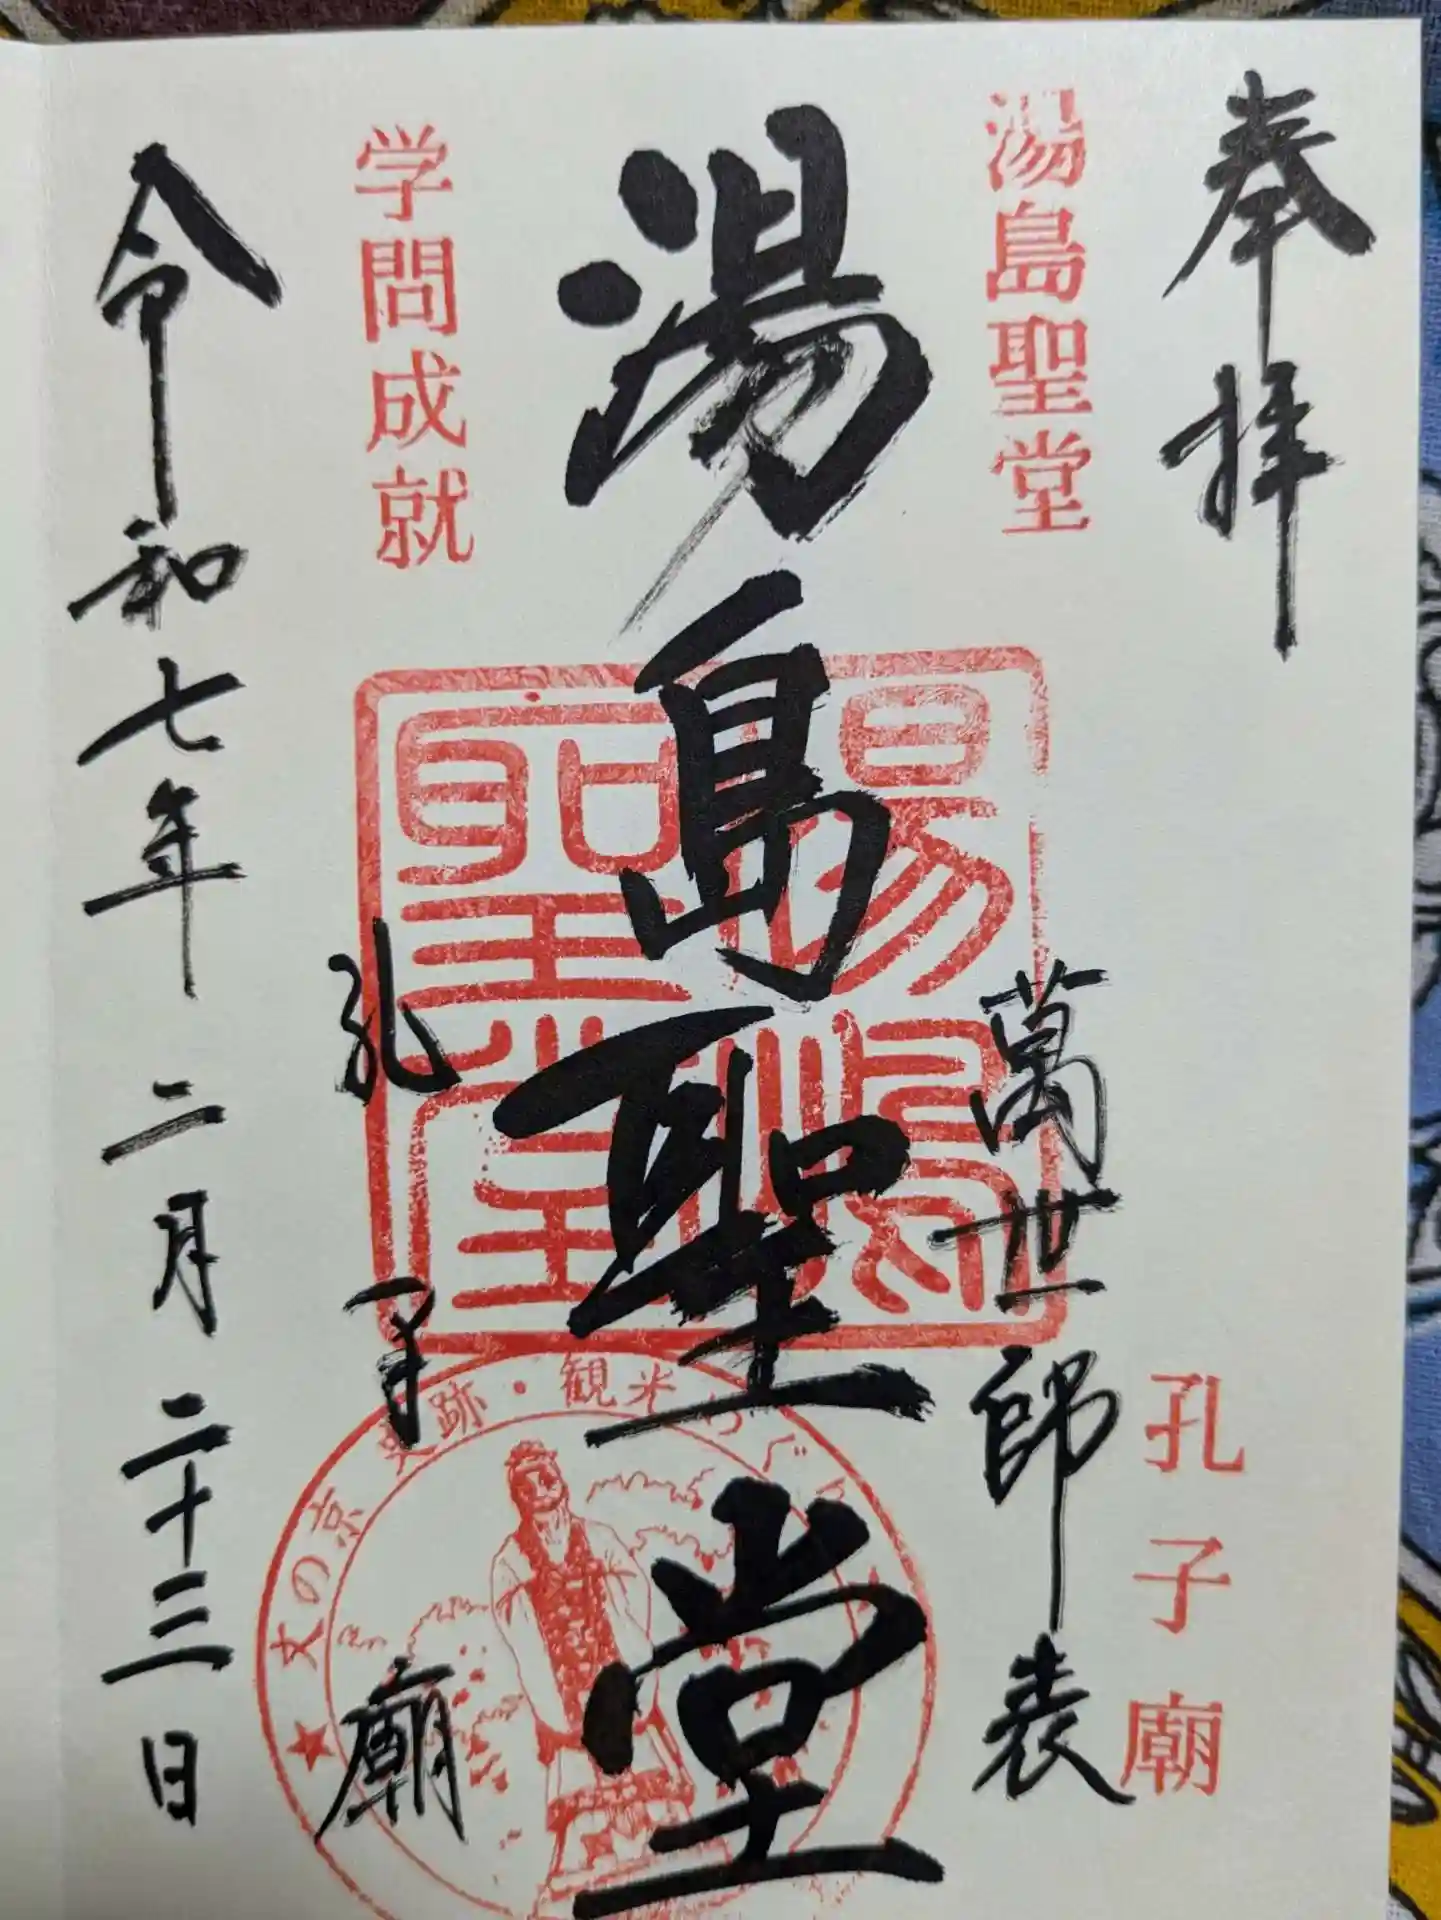 奉拝
湯島聖堂
孔子廟
萬世師表
湯島聖堂
湯島聖堂
学問成就
孔子廟
文の京 史跡・観光
令和七年二月二十三日